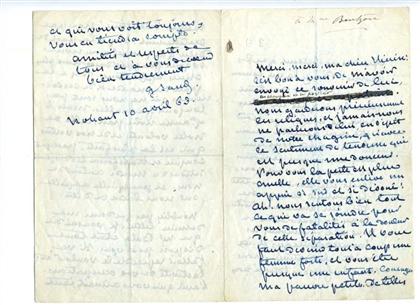 à Mme Boutzon
Merci, merci, ma chère
c'est bon à vous de m'avoir
envoyé ce souvenir de lui.
nous garderons pieusement
ces reliques, et jamais nous
ne parlerons d'elui en dépit
de notre chagrin, qu'avec
ce sentiment de tendresse qui
est presque une douceur.
Pour vous la perte est plus
cruelle, elle vous enlève un
appui si sûr et si dévoué!
Ah nous sentons bien tout
ce qui va se joindre pour
vous de fatalités à la douleur
de cette séparation. Il vous
faut devenir tout à coup une
femme forte, et vous êtes
presque une enfant. Courage
ma pauvre petite. De telles
ce qui vous voit toujours,
vous en tiendra compte.
amitiés et respects de
tous et à vous de cœur
bien tendrement
G Sand
Nohant 10 avril 63.